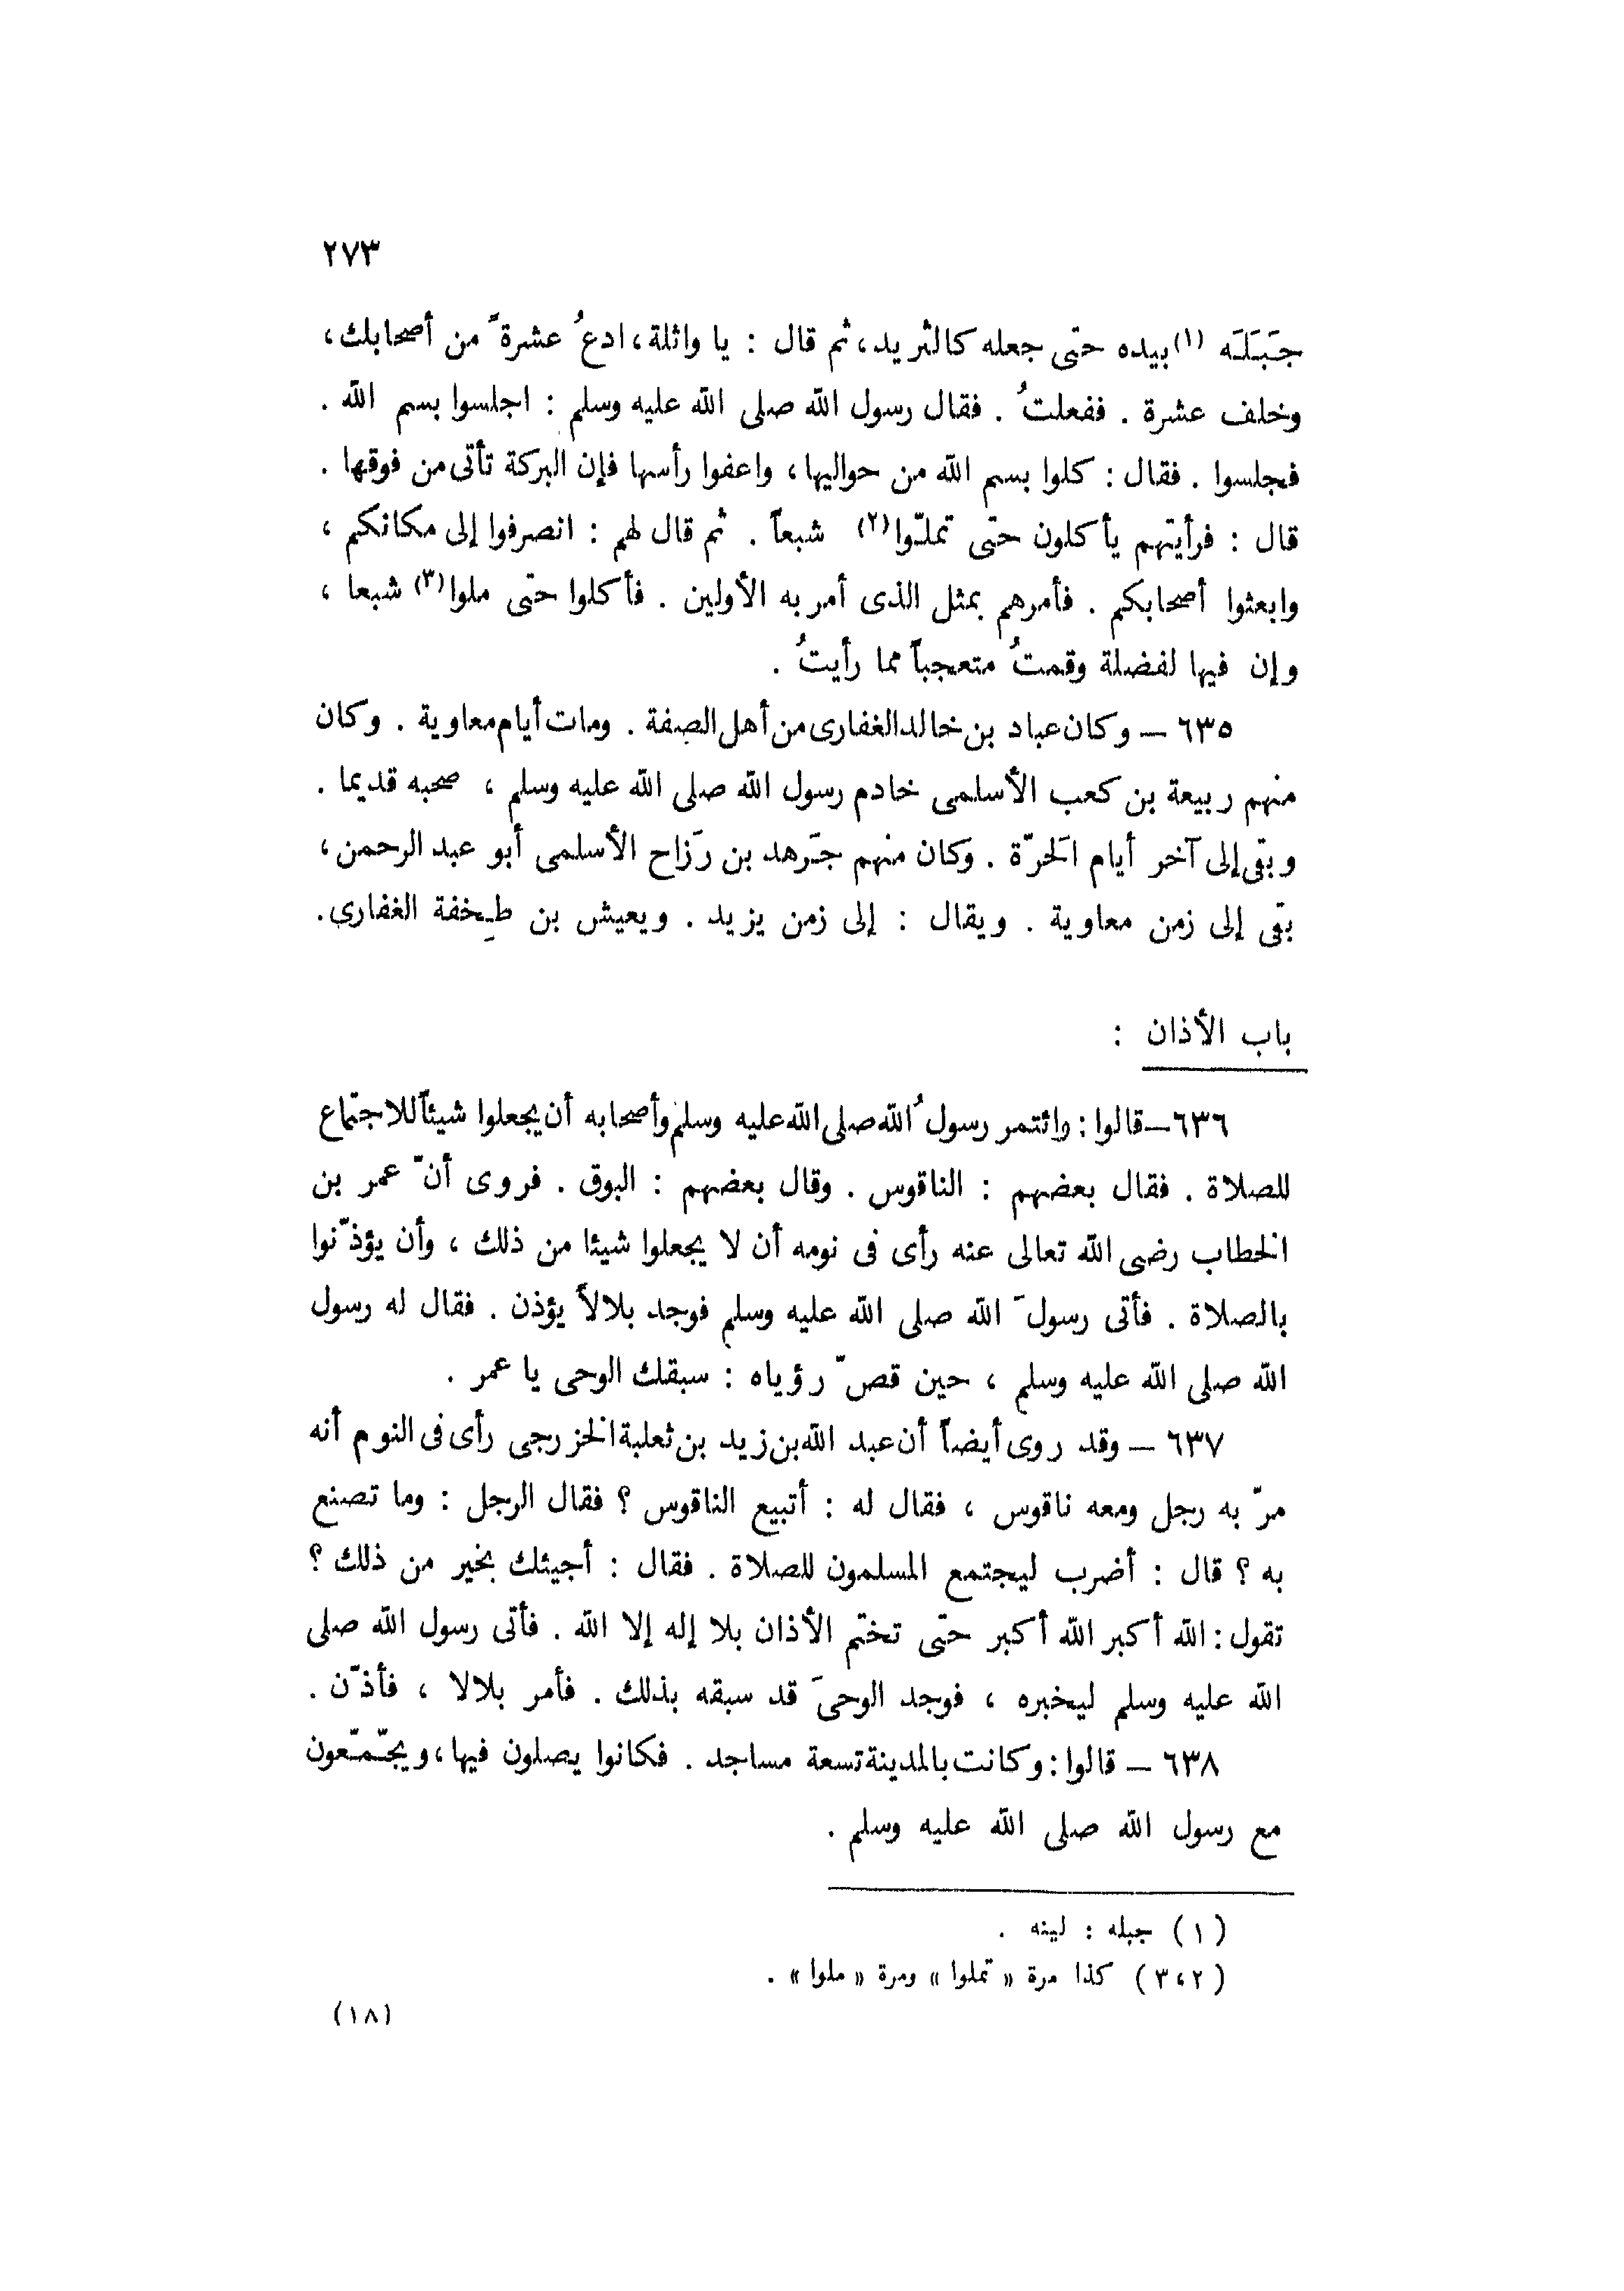 ٢٧٣
جَبَلَه (١) بيده حتى جعله كالثريد، ثم قال : يا واثلة، ادعُ عشرةً من أصحابك،
وخلف عشرة . ففعلتُ . فقال رسول الله صلى الله عليه وسلم : اجلسوا بسم الله .
فجلسوا . فقال : كلوا بسم الله من حواليها، واعفوا رأسها فإن البركة تأتى من فوقها .
قال : فرأيتهم يأكلون حتى تملّوا(٢) شبعاً . ثم قال لهم : انصرفوا إلى مكانكم ،
وابعثوا أصحابكم . فأمرهم بمثل الذى أمر به الأولين . فأكلوا حتى ملوا(٣) شبعا ،
وإن فيها لفضلة وقمتُ متعجباً مما رأيتُ .
٦٣٥ — وكان عباد بن خالد الغفارى من أهل الصفة . ومات أيام معاوية . وكان
منهم ربيعة بن كعب الأسلمى خادم رسول الله صلى الله عليه وسلم ، صحبه قديما .
وبقى إلى آخر أيام الَحرّة . وكان منهم جَرهد بن رَزاح الأسلمى أبو عبد الرحمن،
بقى إلى زمن معاوية . ويقال : إلى زمن يزيد . ويعيش بن طِخفة الغفارى.
باب الأذان :
٦٣٦ — قالوا : وائتمر رسولُ الله صلى الله عليه وسلم وأصحابه أن يجعلوا شيئاً للاجتماع
للصلاة . فقال بعضهم : الناقوس . وقال بعضهم : البوق . فروى أنّ عمر بن
الخطاب رضى الله تعالى عنه رأى فى نومه أن لا يجعلوا شيئا من ذلك ، وأن يؤذّنوا
بالصلاة . فأتى رسولَ الله صلى الله عليه وسلم فوجد بلالاً يؤذن . فقال له رسول
الله صلى الله عليه وسلم ، حين قصّ رؤياه : سبقك الوحى يا عمر .
٦٣٧ — وقد روى أيضاً أن عبد الله بن زيد بن ثعلبة الخزرجى رأى فى النوم أنه
مرّ به رجل ومعه ناقوس ، فقال له : أتبيع الناقوس ؟ فقال الرجل : وما تصنع
به ؟ قال : أضرب ليجتمع المسلمون للصلاة . فقال : أجيئك بخير من ذلك ؟
تقول : الله أكبر الله أكبر حتى تختم الأذان بلا إله إلا الله . فأتى رسول الله صلى
الله عليه وسلم ليخبره ، فوجد الوحىَ قد سبقه بذلك . فأمر بلالا ، فأذّن .
٦٣٨ — قالوا : وكانت بالمدينة تسعة مساجد . فكانوا يصلون فيها، ويجَمّعون
مع رسول الله صلى الله عليه وسلم .
(١) جبله : لينه .
(٢،٣) كذا مرة « تملوا » ومرة « ملوا » .
(١٨)